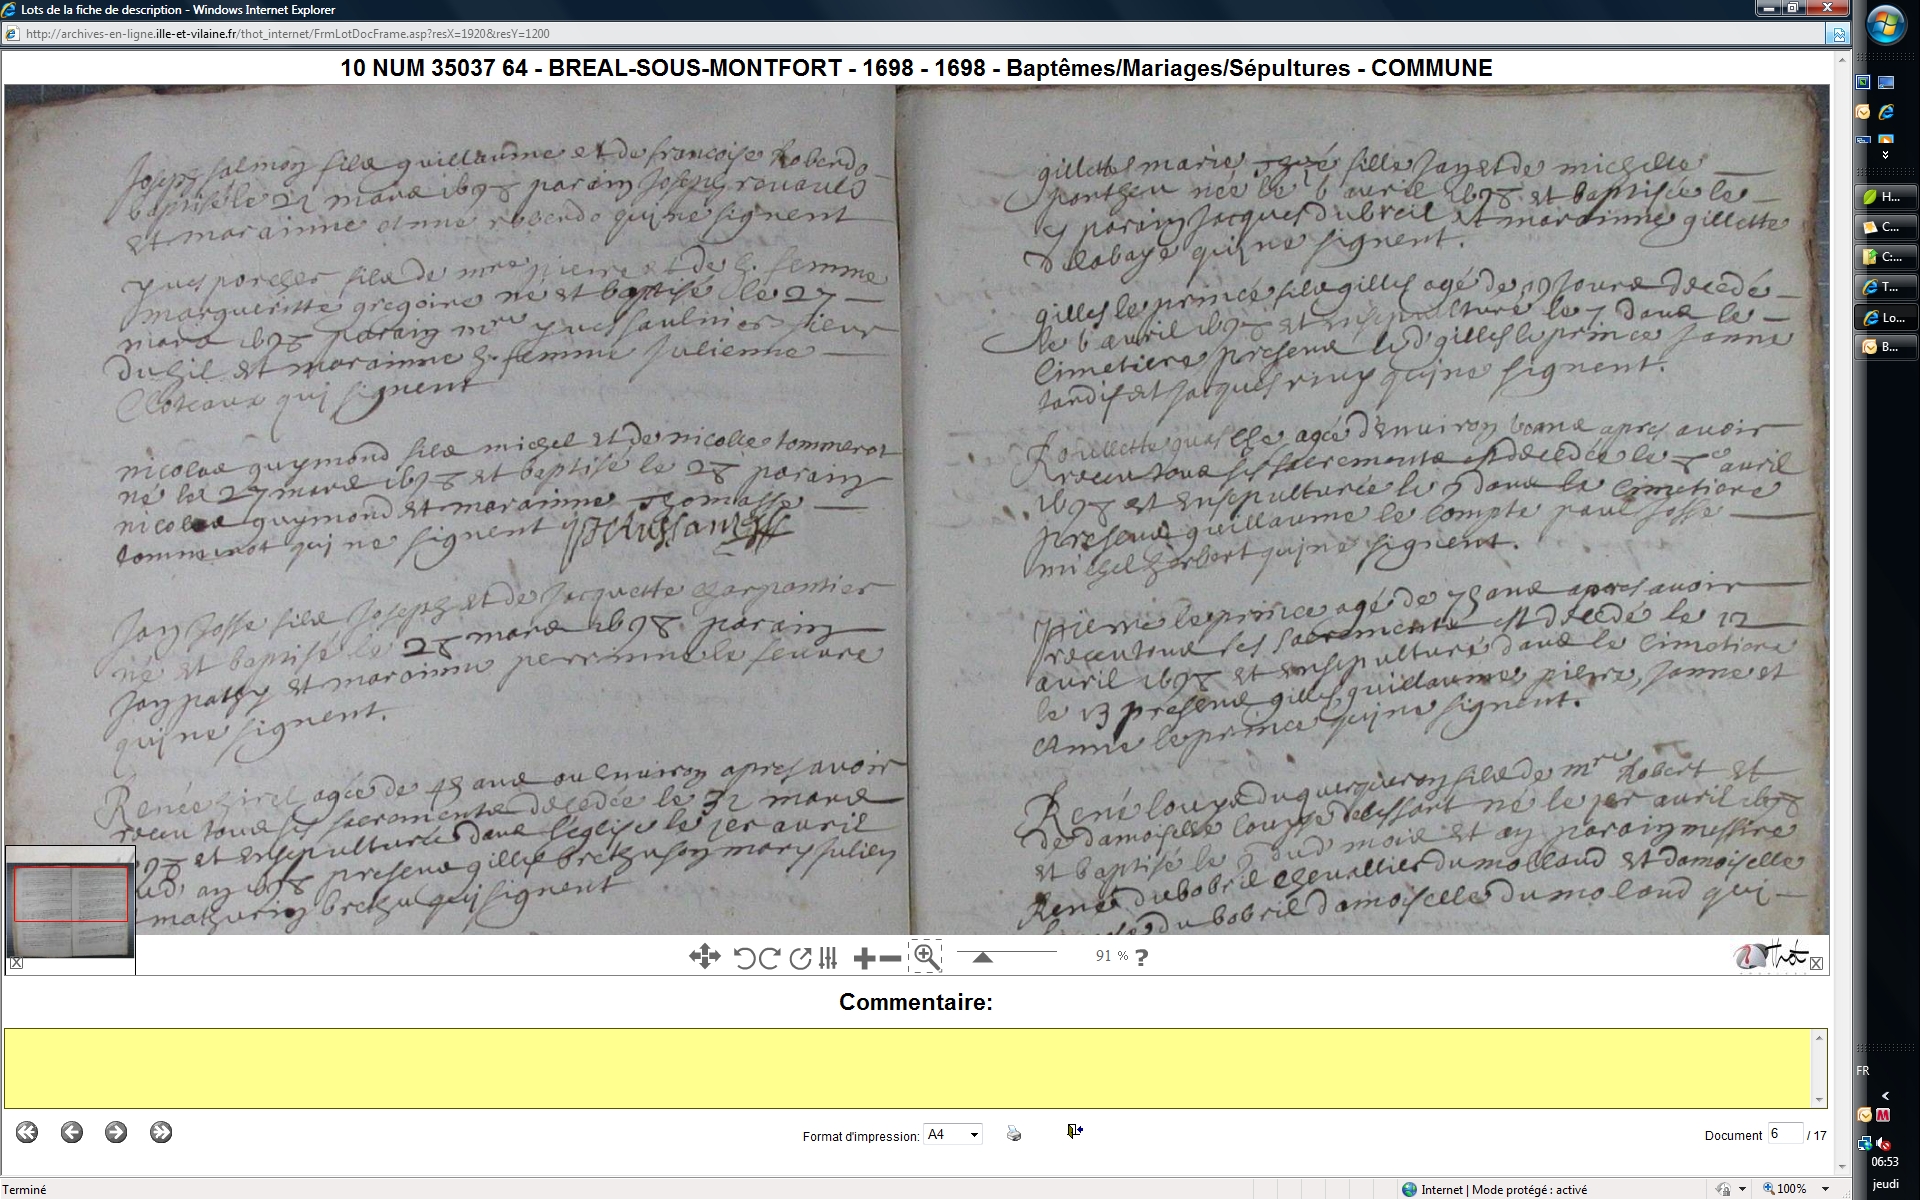 Lots de la fiche de description - Windows Internet Explorer
http://archives-en-ligne.ille-et-vilaine.fr/thot_internet/FrmLotDocFrame.asp?resX=1920&resY=1200
10 NUM 35037 64 - BREAL-SOUS-MONTFORT - 1698 - 1698 - Baptêmes/Mariages/Sépultures - COMMUNE
Joseph salmon fils guillaume et de francoise
baptisé le mars 1698 parain Joseph
et marainne anne qui ne signent
yves porcher fils de mre pierre et de h. femme
margueritte gregoire né et baptisé le 27
mars 1698 parain mre yves saulnier sieur
du et marainne h. femme Julienne
qui signent
nicolas guymond fils michel et de nicolle tommerot
né le 27 mars 1698 et baptisé le 28 parain
nicolas guymond et marainne thomasse
tommerot qui ne signent
Jan Josse fils Joseph et de Jacquette charpantier
né et baptisé le 28 mars 1698 parain
Jan pathy et marainne perrinne le feuvre
qui ne signent.
Renée agée de 45 ans ou environ apres avoir
receu tous ses sacrements decedée le mars
et ensepulturée dans l'eglise le 1er avril
an 1698 presens gilles mary Julien
mathurin qui signent
gillette marie fille Jan et de michelle
née le 6 avril 1698 et baptisée le
7 parain Jacques dubreil et marainne gillette
delabaye qui ne signent.
gilles le prince fils gilles agé de 19 Jours decedé
le 6 avril 1698 et ensepulturé le 7 dans le
Cimetiere presens led gilles le prince Janne
tardif et Jacques qui ne signent.
agée d'environ apres avoir
receu tous ses sacrements est decedée le 8e avril
1698 et ensepulturée le 9 dans le Cimetiere
presens guillaume le Compte paul Josse
michel herbert qui ne signent.
pierre le prince agé de 75 ans apres avoir
receu tous ses sacrements est decedé le 12
avril 1698 et ensepulturé dans le Cimetiere
le 13 presens gilles, guillaume, pierre, Janne et
Anne le prince qui ne signent.
René fils de mre Robert et
de damoiselle né le 1er avril 1698
et baptisé le 9 dud mois et an parain messire
René du bobril chevallier du molland et damoiselle
du bobril damoiselle du moland qui
91 %
?
Thot
Commentaire:
Format d'impression: A4
Document 6 / 17
Terminé
Internet | Mode protégé : activé
100%
H...
C...
C:...
T...
Lo...
B...
FR
06:53
jeudi